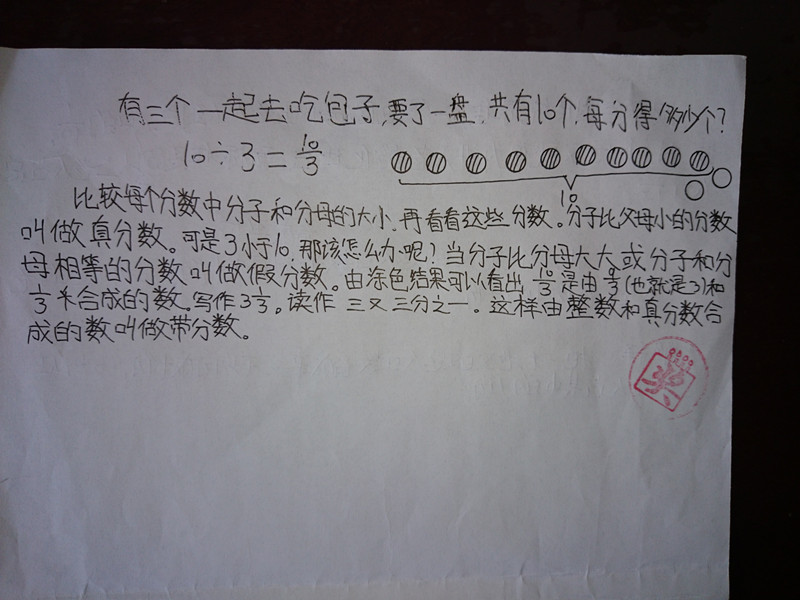 有三个一起去吃包子,要了一盘,共有10个,每分得多少个?
10÷3=10/3
10
比较每个分数中分子和分母的大小,再看看这些分数。分子比父母小的分数
叫做真分数。可是3小于10,那该怎么办呢?当分子比分母大大或分子和分
母相等的分数叫做假分数。由涂色结果可以看出10/3是由9/3(也就是3)和
1/3米合成的数。写作3 1/3。读作三又三分之一。这样由整数和真分数合
成的数叫做带分数。